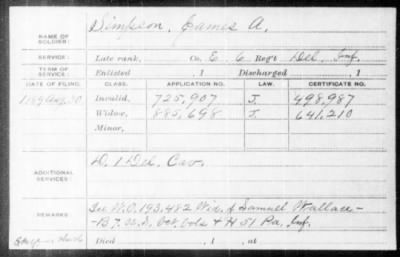 Simpson, James A.
NAME OF SOLDIER:
SERVICE: Late rank, Co. E, 6 Reg't Del. Inf.
TERM OF SERVICE: Enlisted , 1 Discharged , 1
DATE OF FILING. CLASS. APPLICATION NO. LAW. CERTIFICATE NO.
1889 Aug. 30 Invalid, 725,907 J. 498,987
Widow, 885,698 J. 641,210
Minor,
D. 1 Del. Cav.
ADDITIONAL SERVICES:
See W.O. 193,482 Wid. of Samuel Wallace -
REMARKS: - B 7, Vols & H 51 Pa. Inf.
Died , 1 , at